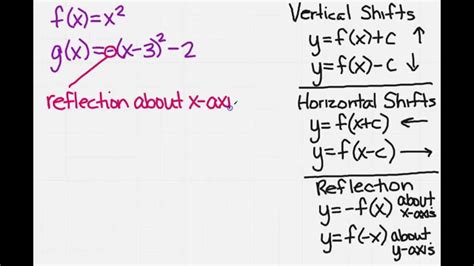 f(x)=x²
g(x)=-(x-3)²-2
reflection about x-axis
Vertical Shifts
y=f(x)+c ↑
y=f(x)-c ↓
Horizontal Shifts
y=f(x+c) ←
y=f(x-c) →
Reflection
y=-f(x) about x-axis
y=f(-x) about y-axis